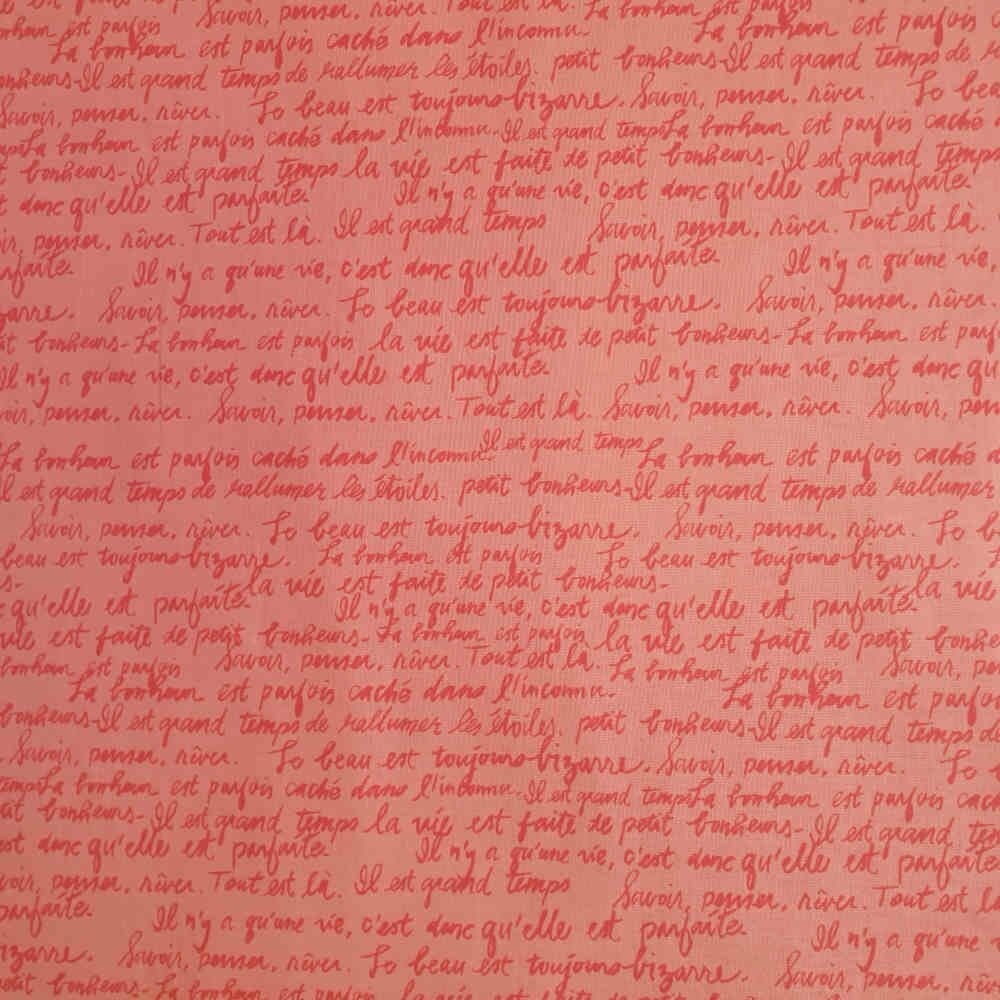 Savoir, penser, rêver. Tout est là. La bonheur est parfois
bonheur est parfois
La bonheur est parfois caché dans l'inconnu. La bonheur est parfois
bonheurs-Il est grand temps de rallumer les étoiles. petit bonheurs-Il est grand temps de
Savoir, penser, rêver. Le beau est toujours bizarre. Savoir, penser, rêver. Le beau
La bonheur est parfois caché dans l'inconnu. Il est grand temps La bonheur est parfois caché
bonheurs-Il est grand temps la vie est faite de petit bonheurs-Il est grand temps
est donc qu'elle est parfaite. Il n'y a qu'une vie, c'est donc qu'elle est parfaite.
penser, rêver. Tout est là. Il est grand temps Savoir, penser, rêver. Tout est là.
parfaite. Il n'y a qu'une vie, c'est donc qu'elle est parfaite. Il n'y a qu'une vie,
bizarre. Savoir, penser, rêver. Le beau est toujours bizarre. Savoir, penser, rêver.
petit bonheurs-La bonheur est parfois la vie est faite de petit bonheurs-La bonheur est
Il n'y a qu'une vie, c'est donc qu'elle est parfaite. Il n'y a qu'une vie, c'est donc
penser, rêver. Savoir, penser, rêver. Tout est là. Savoir, penser, rêver. Savoir,
La bonheur est parfois caché dans l'inconnu. Il est grand temps La bonheur est parfois caché
Il est grand temps de rallumer les étoiles. petit bonheurs-Il est grand temps de rallumer
Savoir, penser, rêver. Le beau est toujours bizarre. Savoir, penser, rêver. Le
beau est toujours bizarre. La bonheur est parfois Le beau est toujours bizarre.
la vie est faite de petit bonheurs- la vie
qu'elle est parfaite. Il n'y a qu'une vie, c'est donc qu'elle est parfaite.
vie est faite de petit bonheurs-La bonheur est parfois la vie est faite de petit
bonheur est parfois Savoir, penser, rêver. Tout est là. La bonheur est parfois Savoir,
La bonheur est parfois caché dans l'inconnu. La bonheur est parfois
bonheurs-Il est grand temps de rallumer les étoiles. petit bonheurs-Il est grand temps de
Savoir, penser, rêver. Le beau est toujours bizarre. Savoir, penser, rêver. Le
temps La bonheur est parfois caché dans l'inconnu. Il est grand temps La bonheur est parfois
petit bonheurs-Il est grand temps la vie est faite de petit bonheurs-Il est grand
est donc qu'elle est parfaite. Il n'y a qu'une vie, c'est donc qu'elle est parfaite
penser, rêver. Tout est là. Il est grand temps Savoir, penser, rêver. Tout est
parfaite. Il n'y a qu'une vie, c'est donc qu'elle est parfaite. Il n'y a qu'une
bizarre. Savoir, penser, rêver. Le beau est toujours bizarre. Savoir, penser,
petit bonheurs-La bonheur est parfois la vie est faite de petit bonheurs-